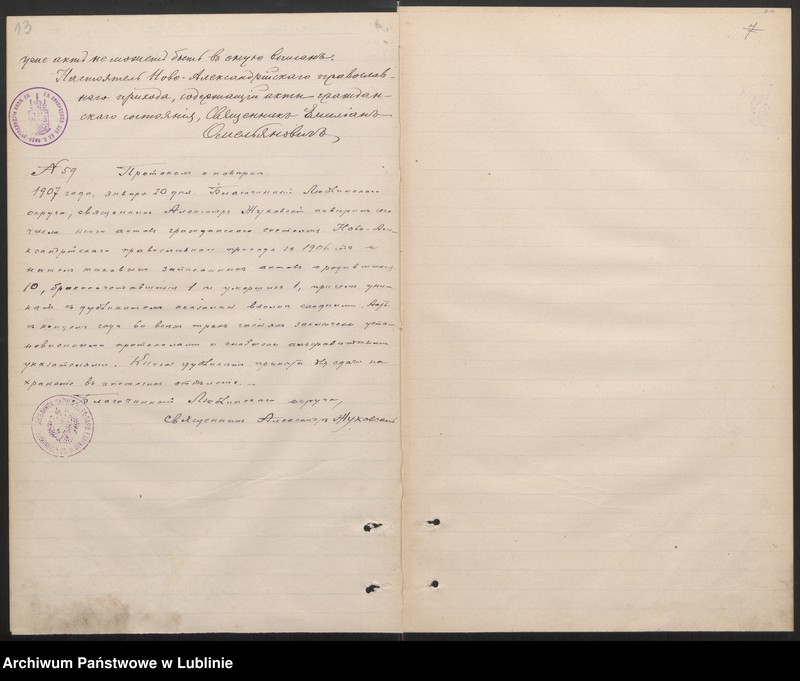 13
7
уже актъ не можетъ быть въ оную вписанъ.
Настоятель Ново-Александрійскаго православ-
наго прихода, содержащій акты граждан-
скаго состоянія, Священникъ Емиліанъ
Омельяновичъ
№ 59 Протоколъ о повѣркѣ
1907 года, января 20 дня Благочинный Люблинскаго
округа, священникъ Александръ Жуковскій повѣрилъ сего
числа книги актовъ гражданскаго состоянія Ново-Але-
ксандрійскаго православнаго прихода за 1906 и
нашелъ таковыхъ записанныхъ актовъ о родившихся
10, бракосочетавшихся 1 и умершихъ 1, причемъ уни-
катъ съ дубликатомъ оказались вполнѣ сходными.
съ концомъ года во всѣхъ трехъ частяхъ закончены уста-
новленными протоколами и снабжены алфавитными
указателями. Книга дубликатъ принята для сдачи на
храненіе въ
Благочинный Люблинскаго округа,
Священникъ Александръ Жуковскій
Archiwum Państwowe w Lublinie